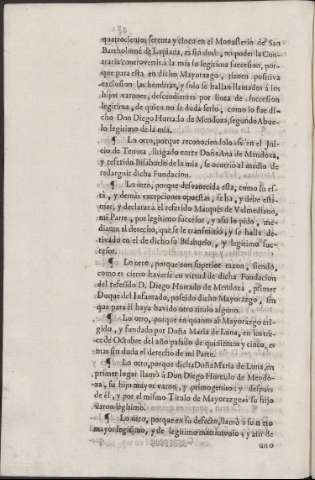 quatrocientos setenta y cinco en el Monasterio de San
Bartholomè de Lupiana, es sin dud., ni poder la Con-
traria controvertir à la mia su legitima succession, por-
que para esta en dicho Mayorazgo, tienen positiva
exclusion las hembras, y solo se hallan llamados à los
hijos varones, descendientes por linea de succession
legitima, de quien no se duda serlo, como lo fue di-
cho Don Diego Hurtado de Mendoza, segundo Abue-
lo legitimo de la mia.
¶ Lo otro, porque reconociendolo assi en el Jui-
cio de Tenuta, litigado entre Doña Ana de Mendoza,
y referido Bisabuelo de la mia, se ocurriò al medio de
redarguir dicha Fundacion.
¶ Lo otro, porque desvanecida esta, como lo es-
tà, y demàs excepciones opuestas, se ha, y debe esti-
mar, y declarar à el referido Marquès de Valmediano,
mi Parte, por legitimo successor, y assi lo pido, me-
diante el derecho, que se le transmitiò, y se halla de-
rivado en el de dicho su Bisabuelo, y legitimo suc-
cessor.
¶ Lo otro, porque con superior razon, siendo,
como es cierto haverse en virtud de dicha Fundacion
del referido D. Diego Hurtado de Mendoza, primer
Duque del Infantado, poseìdo dicho Mayorazgo, sin
que para èl haya havido otro titulo alguno.
¶ Lo otro, porque en quanto al Mayorazgo eri-
gido, y fundado por Doña Maria de Luna, en los tre-
ce de Octubre del año passado de quinientos y cinco, es
mas sin duda el derecho de mi Parte.
¶ Lo otro, porque dicha Doña Maria de Luna, en
primer lugar llamò à Don Diego Hurtado de Mendo-
za, su hijo mayor varon, y primogenito; y despues
de èl, y por el mismo Titulo de Mayorazgo à su hijo
varon legitimo.
¶ Lo otro, porque en su defecto, llamò à su nieto
mayor legitimo, y de legitimo matrimonio; y assi de
uno